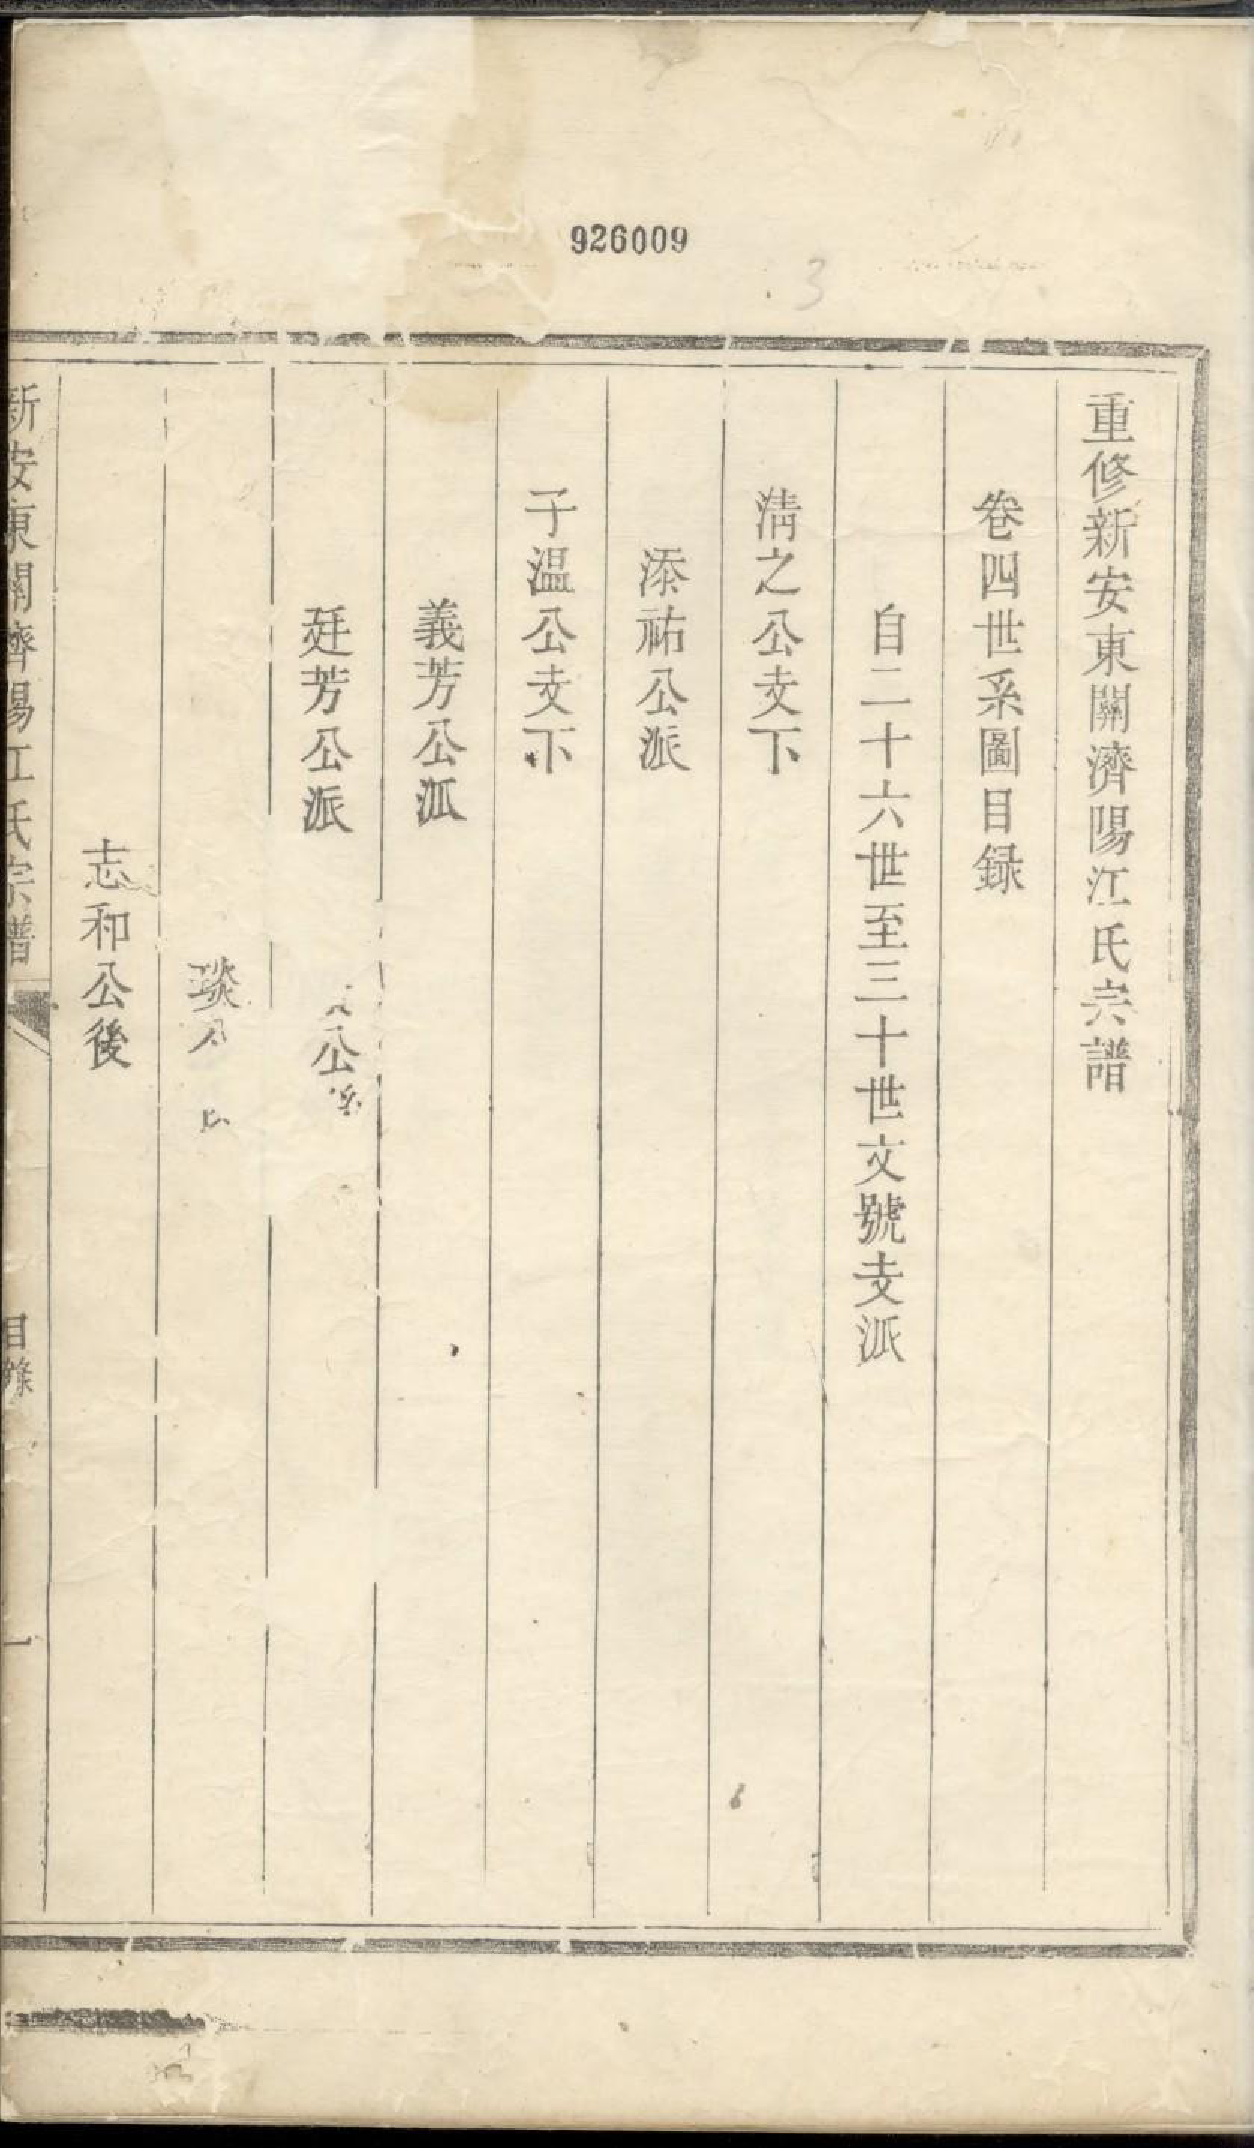 926009
3
重修新安東關濟陽江氏宗譜
卷四世系圖目録
自二十六世至三十世文號支派
清之公支下
添祐公派
子温公支下
義芳公派
廷芳公派
公
琰
志和公後
新安東關濟陽江氏宗譜
目錄
一